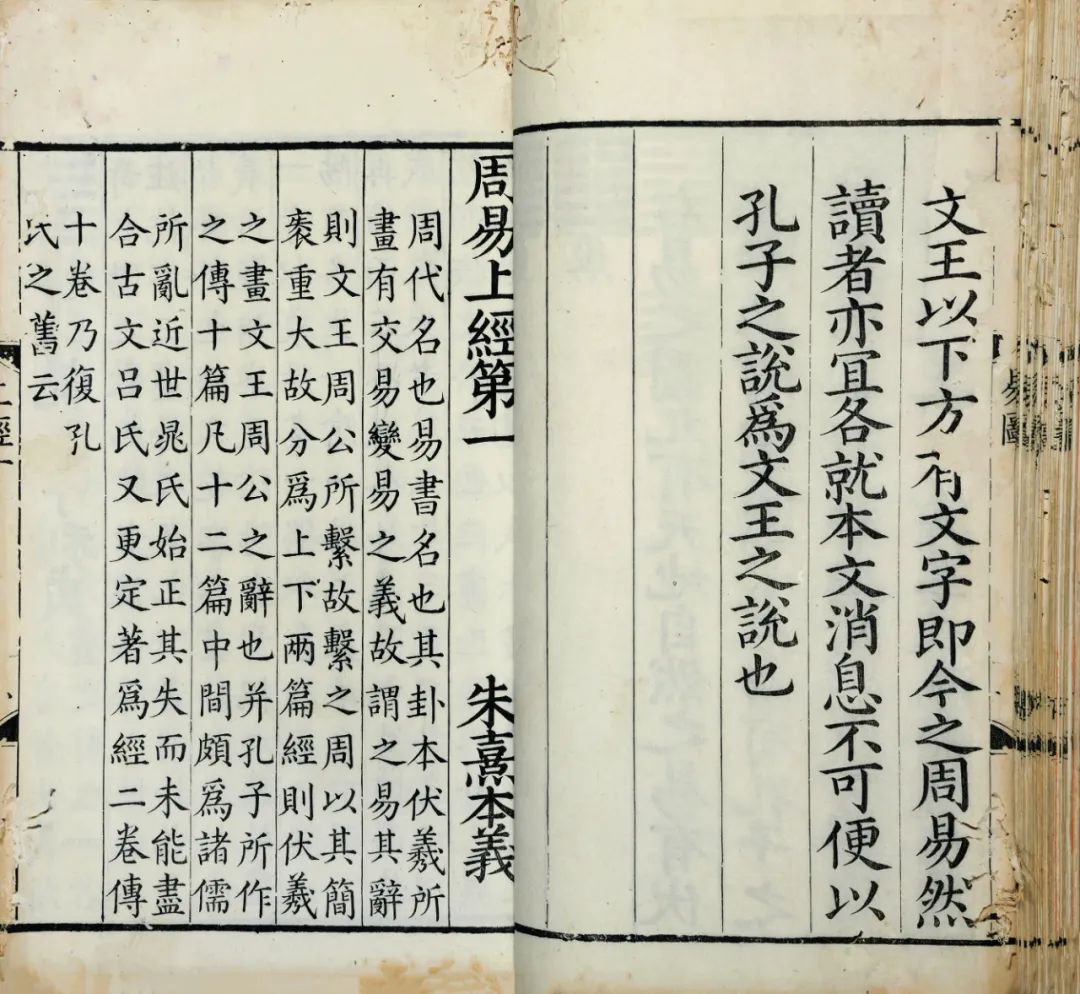 文王以下方有文字即今之周易然
讀者亦冝各就本文消息不可便以
孔子之說爲文王之說也
易圖
周易上經第一
朱熹本義
周代名也易書名也其卦本伏羲所
畫有交易變易之義故謂之易其辭
則文王周公所繫故繫之周以其簡
袠重大故分爲上下兩篇經則伏羲
之畫文王周公之辭也并孔子所作
之傳十篇凡十二篇中間頗爲諸儒
所亂近世晁氏始正其失而未能盡
合古文吕氏又更定著爲經二卷傳
十卷乃復孔
氏之舊云
上經一